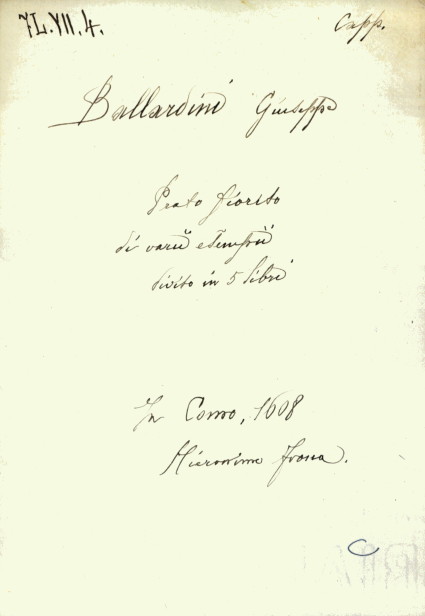 7L.VII.4.
Capp.
Ballardini Giuseppe
Prato fiorito
di varii essempii
divito in 5 libri
In Como, 1608
Hieronimo Frova.